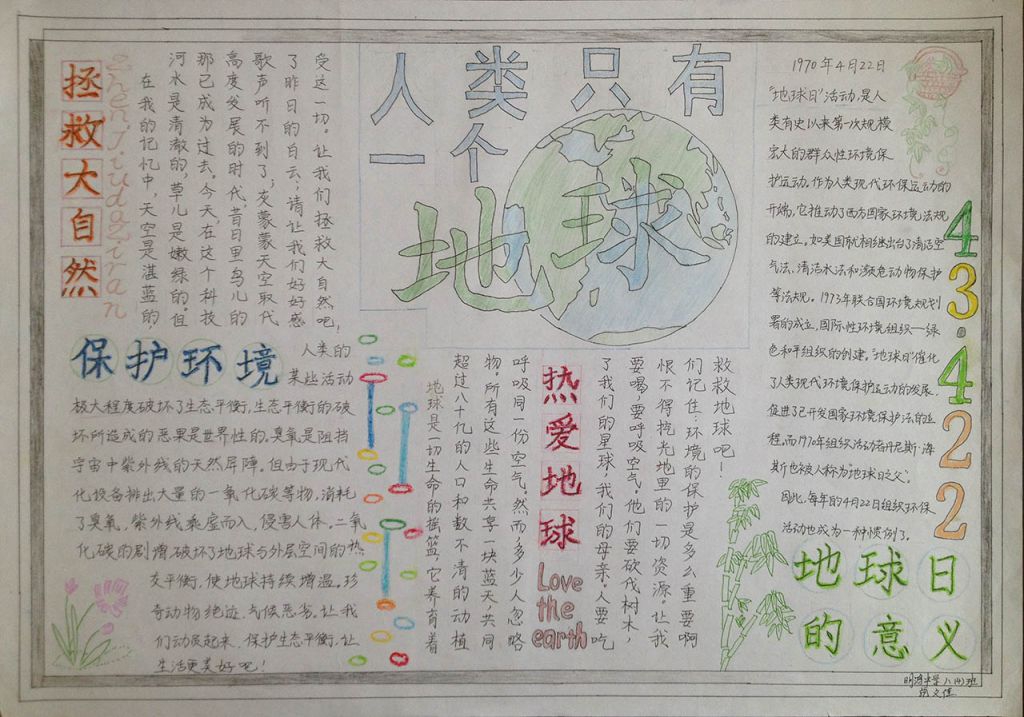 人类只有
一个
地球
拯救大自然
Zhen jiu da zi ran
在我的记忆中，天空是湛蓝的，
河水是清澈的，草儿是嫩绿的。但
那已成为过去。今天，在这个科技
高度发展的时代，昔日里鸟儿的
歌声听不到了；灰蒙蒙天空取代
了昨日的白云；请让我们好好感
受这一切。让我们拯救大自然吧！
保护环境
人类的
某些活动
极大程度破坏了生态平衡，生态平衡的破
坏所造成的恶果是世界性的。臭氧是阻挡
宇宙中紫外线的天然屏障。但由于现代
化设备排出大量的一氧化碳等物，消耗
了臭氧，紫外线乘虚而入，侵害人体。二氧
化碳的剧增，破坏了地球与外层空间的热
交平衡，使地球持续增温。珍
奇动物绝迹，气候恶劣。让我
们动员起来，保护生态平衡，让
生活更美好吧！
热爱地球
Love
the
earth
地球是一切生命的摇篮，它养育着
超过八十亿的人口和数不清的动植
物。所有这些生命共享一块蓝天，共同
呼吸同一份空气。然而，多少人忽略
了我们的星球，我们的母亲。人要吃
要喝，要呼吸空气。他们要砍伐树木，
恨不得挖光地里的一切资源。让我
们记住：环境的保护是多么重要啊
救救地球吧！
1970年4月22日
"地球日"活动，是人
类有史以来第一次规模
宏大的群众性环境保
护运动。作为人类现代环保运动的
开端，它推动了西方国家环境法规
的建立。如美国就相继出台了清洁空
气法、清洁水法和濒危动物保护
等法规。1973年联合国环境规划
署的成立，国际性环境组织—绿
色和平组织的创建。"地球日"催化
了人类现代环境保护运动的发展，
促进了已开发国家环境保护法的立
程，而1970年组织活动者丹尼斯·海
斯也被人称为"地球日之父"。
因此，每年的4月22日组织环保
活动也成为一种惯例了。
43.422
地球日
的意义